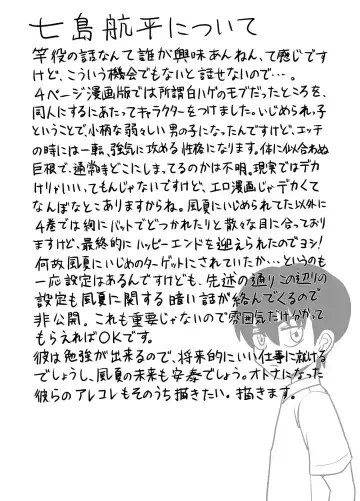 七島航平について
竿役の話なんて誰が興味あんねん、て感じです
けど、こういう機会でもないと話せないので…。
4ページ漫画版では所謂白ハゲのモブだったところを、
同人にするにあたってキャラクターをつけました。いじめられっ子
ということで、小柄な弱々しい男の子になったんですけど、エッチ
の時には一転、強気に攻める性格になります。体に似合わぬ
巨根で、通常時どこにしまってるのかは不明。現実ではデカ
けりゃいい、てもんじゃないですけど、エロ漫画じゃデカくて
なんぼなとこありますからね。風夏にいじめられてた以外に
4巻では絢にバットでどつかれたりと散々な目に合っており
ますけど、最終的にハッピーエンドを迎えられたのでヨシ!
何故風夏にいじめのターゲットにされていたか…というのも
一応設定はあるんですけども、先述の通りこの辺りの
設定も風夏に関する暗い話が絡んでくるので
非公開。これも重要じゃないので雰囲気だけ分かって
もらえればOKです。
彼は勉強が出来るので、将来的にいい仕事に就ける
でしょうし、風夏の未来も安泰でしょう。オトナになった
彼らのアレコレもそのうち描きたい。描きます。